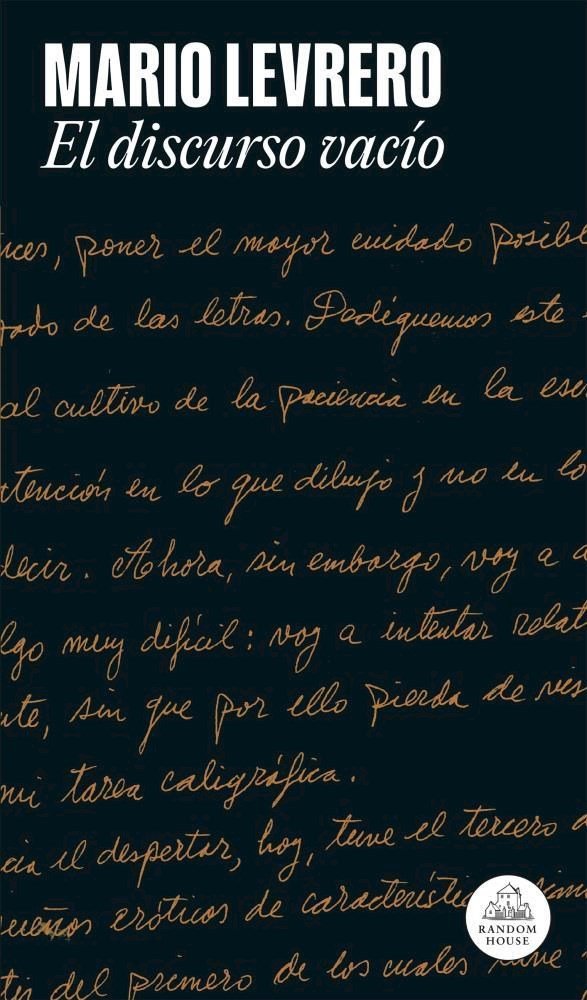 MARIO LEVRERO
El discurso vacío
nces, poner el mayor cuidado posibl
ado de las letras. Dediquemos este
al cultivo de la paciencia en la esc
tención en lo que dibujo y no en lo
decir. Ahora, sin embargo, voy a
lgo muy difícil: voy a intentar relat
nte, sin que por ello pierda de vis
mi tarea caligráfica.
cia el despertar, hoy, tuve el tercero
sueños eróticos de característic
tes del primero de los cuales tuve
RANDOM
HOUSE